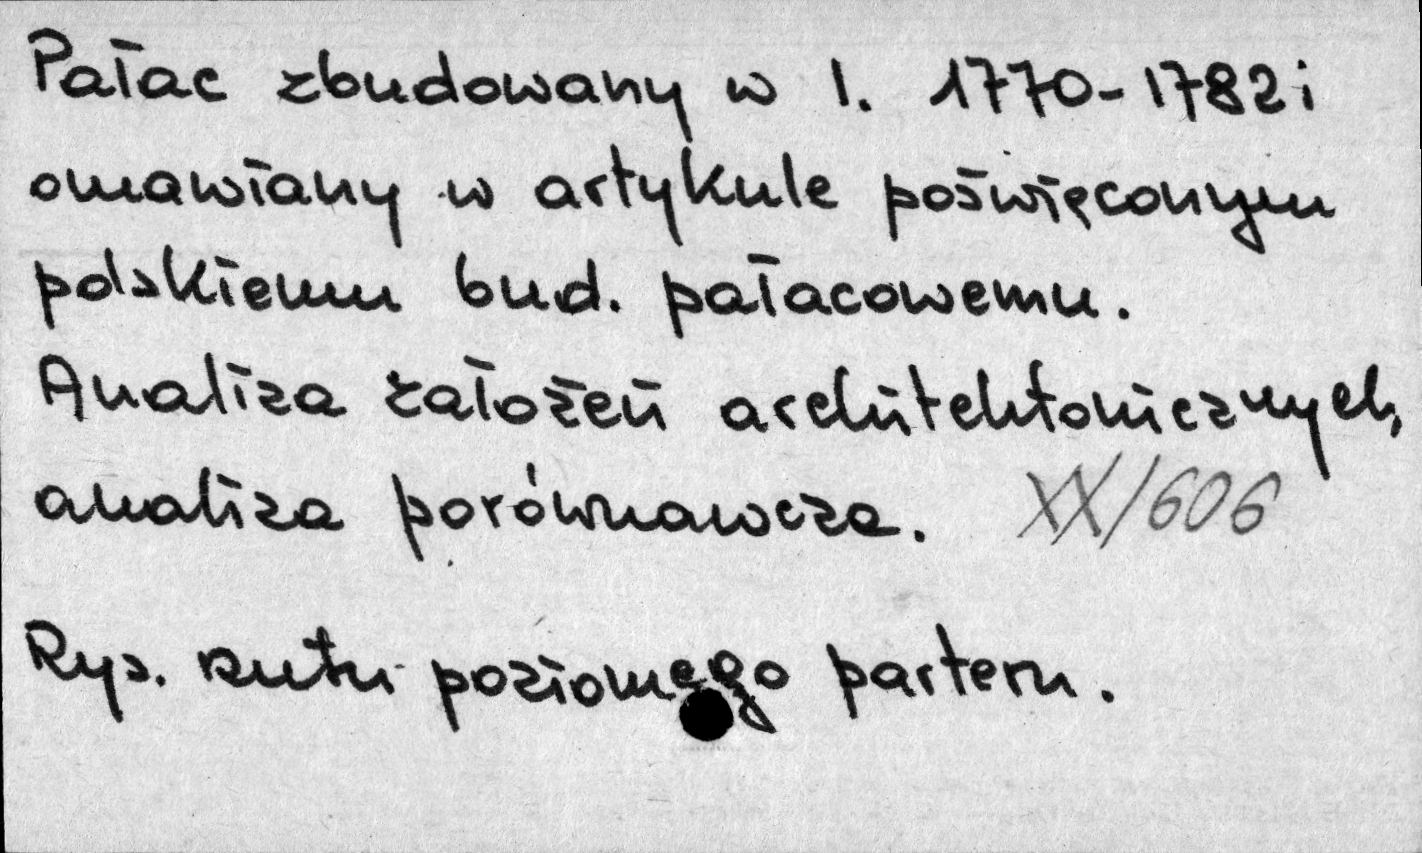 Pałac zbudowany w l. 1770-1782 i
omawiany w artykule poświęconym
polskiemu bud. pałacowemu.
Analiza założeń architektonicznych,
analiza porównawcza. XX/606
Rys. rzutu poziomego parteru.